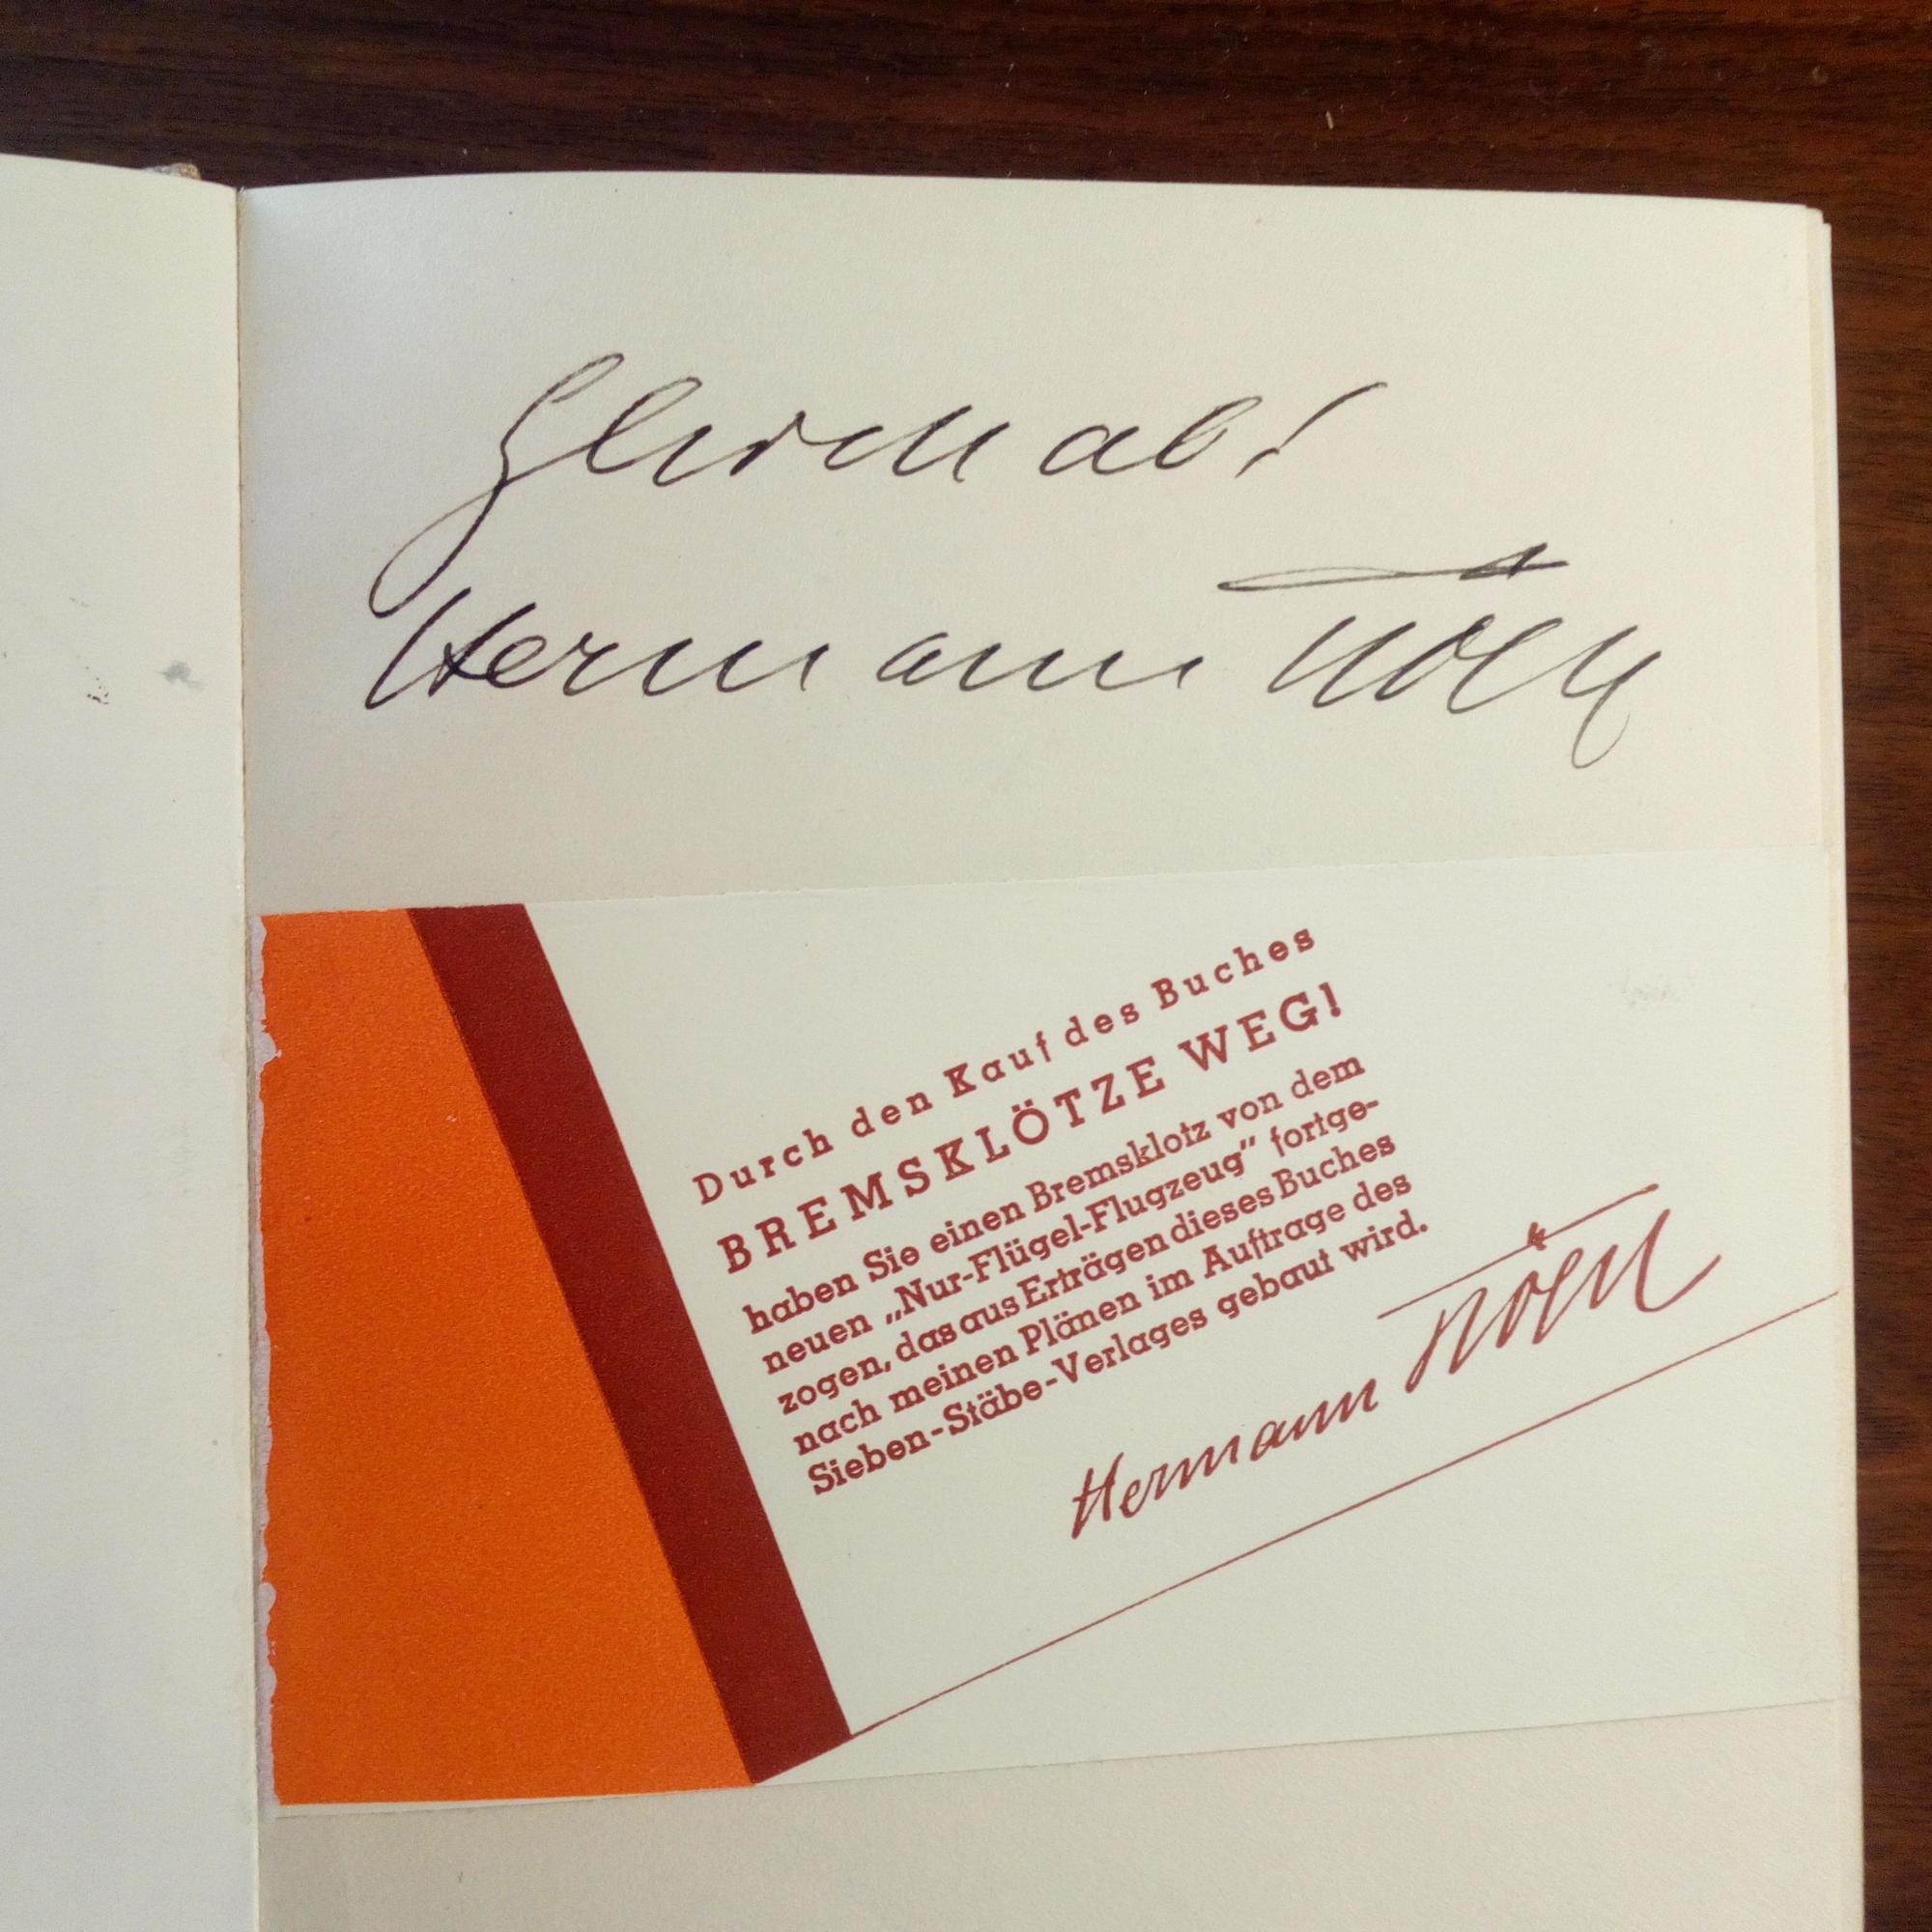 Glück ab!
Hermann Köhl
Durch den Kauf des Buches
BREMSKLÖTZE WEG!
haben Sie einen Bremsklotz von dem
neuen „Nur-Flügel-Flugzeug” fortge-
zogen, das aus Erträgen dieses Buches
nach meinen Plänen im Auftrage des
Sieben-Stäbe-Verlages gebaut wird.
Hermann Köhl